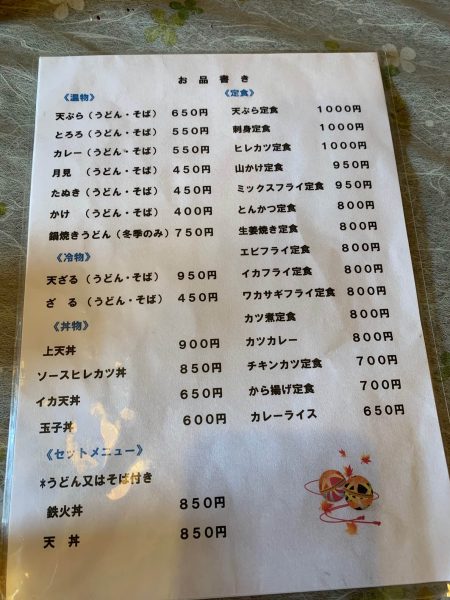 お品書き
《温物》
天ぷら（うどん・そば） 650円
とろろ（うどん・そば） 550円
カレー（うどん・そば） 550円
月見 （うどん・そば） 450円
たぬき（うどん・そば） 450円
かけ （うどん・そば） 400円
鍋焼きうどん（冬季のみ）750円
《冷物》
天ざる（うどん・そば） 950円
ざ る（うどん・そば） 450円
《丼物》
上天丼 900円
ソースヒレカツ丼 850円
イカ天丼 650円
玉子丼 600円
《セットメニュー》
*うどん又はそば付き
鉄火丼 850円
天 丼 850円
《定食》
天ぷら定食 1000円
刺身定食 1000円
ヒレカツ定食 1000円
山かけ定食 950円
ミックスフライ定食 950円
とんかつ定食 800円
生姜焼き定食 800円
エビフライ定食 800円
イカフライ定食 800円
ワカサギフライ定食 800円
カツ煮定食 800円
カツカレー 800円
チキンカツ定食 700円
から揚げ定食 700円
カレーライス 650円